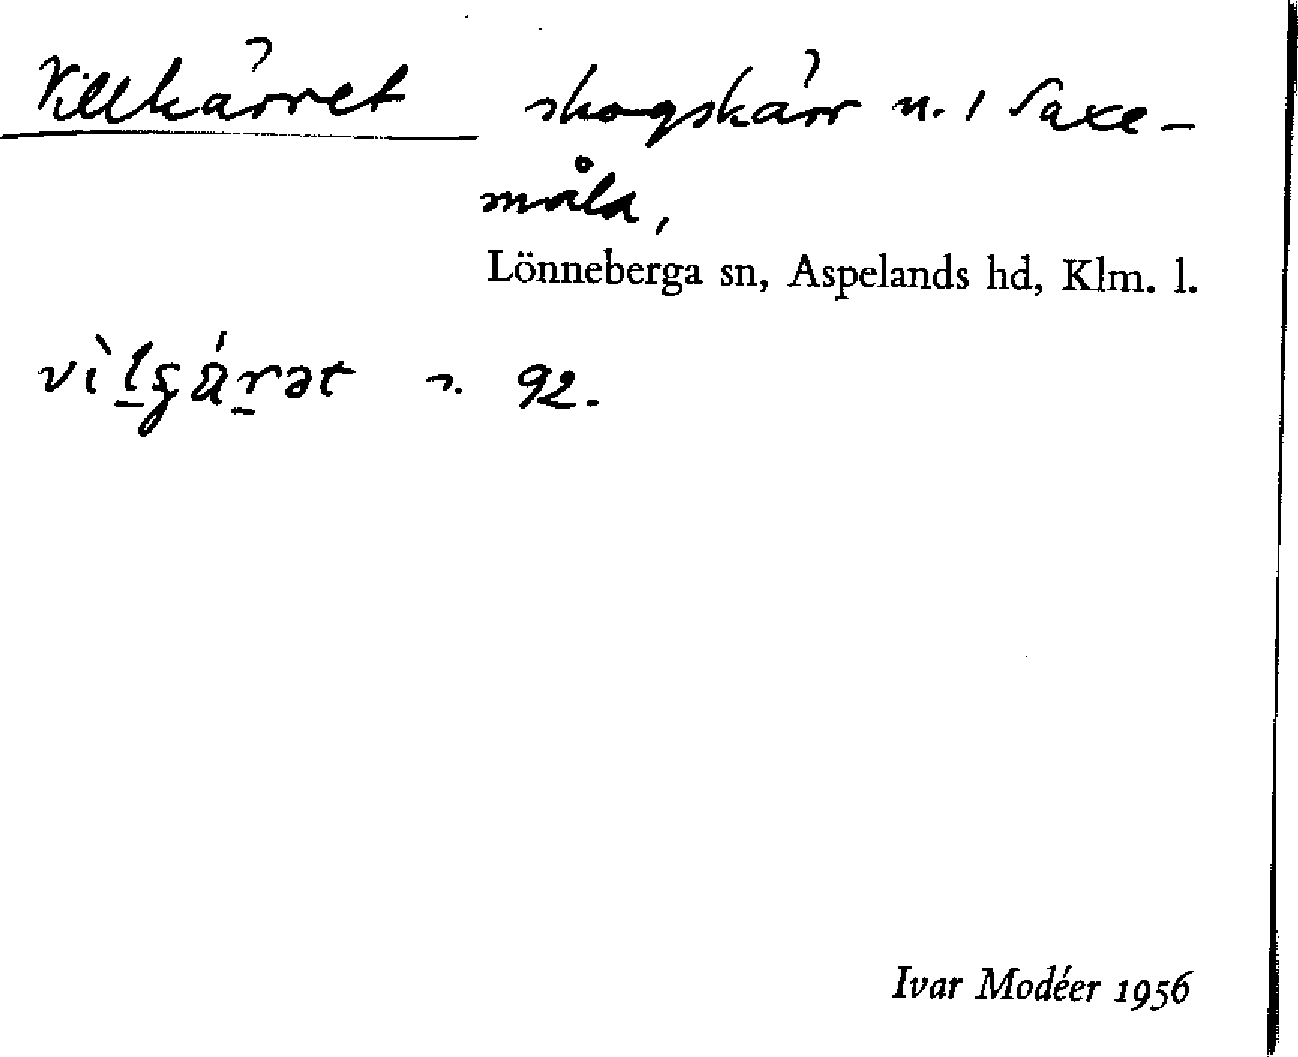 Villkärret skogskärr n. i Saxe-
måla,
Lönneberga sn, Aspelands hd, Klm. l.
92.
Ivar Modéer 1956